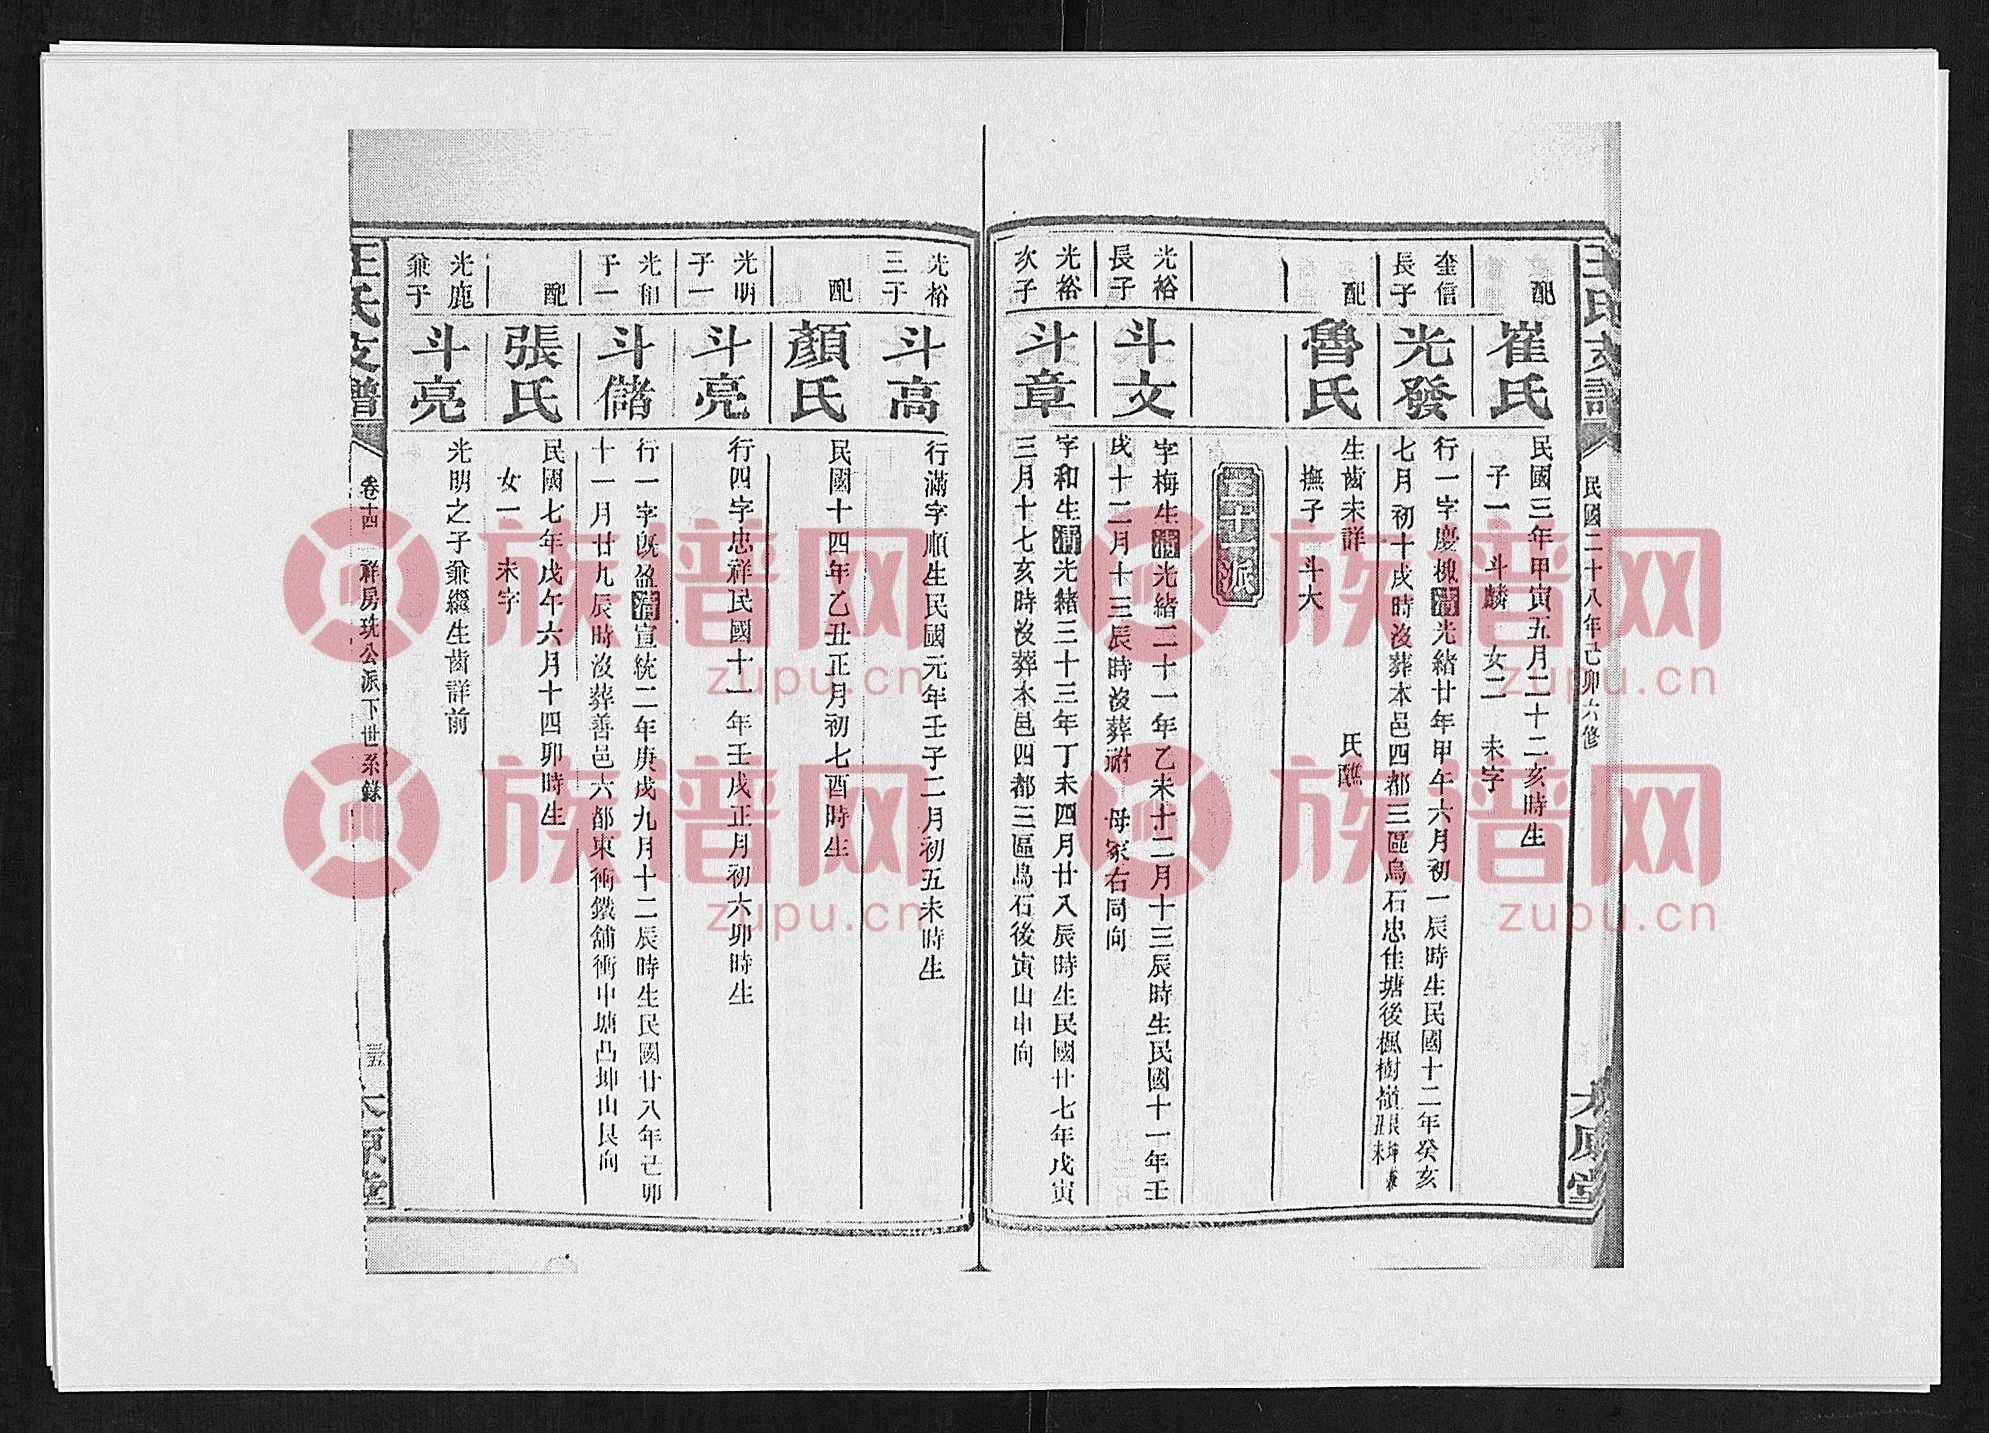 民國二十八年己卯六修
配
崔氏
民國三年甲寅五月二十二亥時生
子一 斗麟 女二 未字
奎信
長子
光發
行一字慶槐清光緒廿年甲午六月初一辰時生民國十二年癸亥
七月初十戌時沒葬本邑四都三區烏石忠佳塘後楓樹嶺
配
魯氏
生齒未詳 氏醮
撫子 斗大
光裕
長子
斗文
字梅生清光緒二十一年乙未十二月十三辰時生民國十一年壬
戌十二月十三辰時沒葬祔 母冢右同向
光裕
次子
斗章
字和生清光緒三十三年丁未四月廿八辰時生民國廿七年戊寅
三月十七亥時沒葬本邑四都三區烏石後寅山申向
光裕
三子
斗高
行滿字順生民國元年壬子二月初五未時生
配
顏氏
民國十四年乙丑正月初七酉時生
光明
子一
斗亮
行四字忠祥民國十一年壬戌正月初六卯時生
光和
子一
斗儲
行一字既盈清宣統二年庚戌九月十二辰時生民國廿八年己卯
十一月廿九辰時沒葬善邑六都東衝鐵舖衝中塘凸坤山艮向
配
張氏
民國七年戊午六月十四卯時生
女一 未字
光鹿
兼子
斗亮
光明之子兼繼生齒詳前
王氏支譜
卷十四 祥房珗公派下世系錄
族譜网
zupu.cn
族譜网
zupu.cn
族譜网
zupu.cn
族譜网
zupu.cn